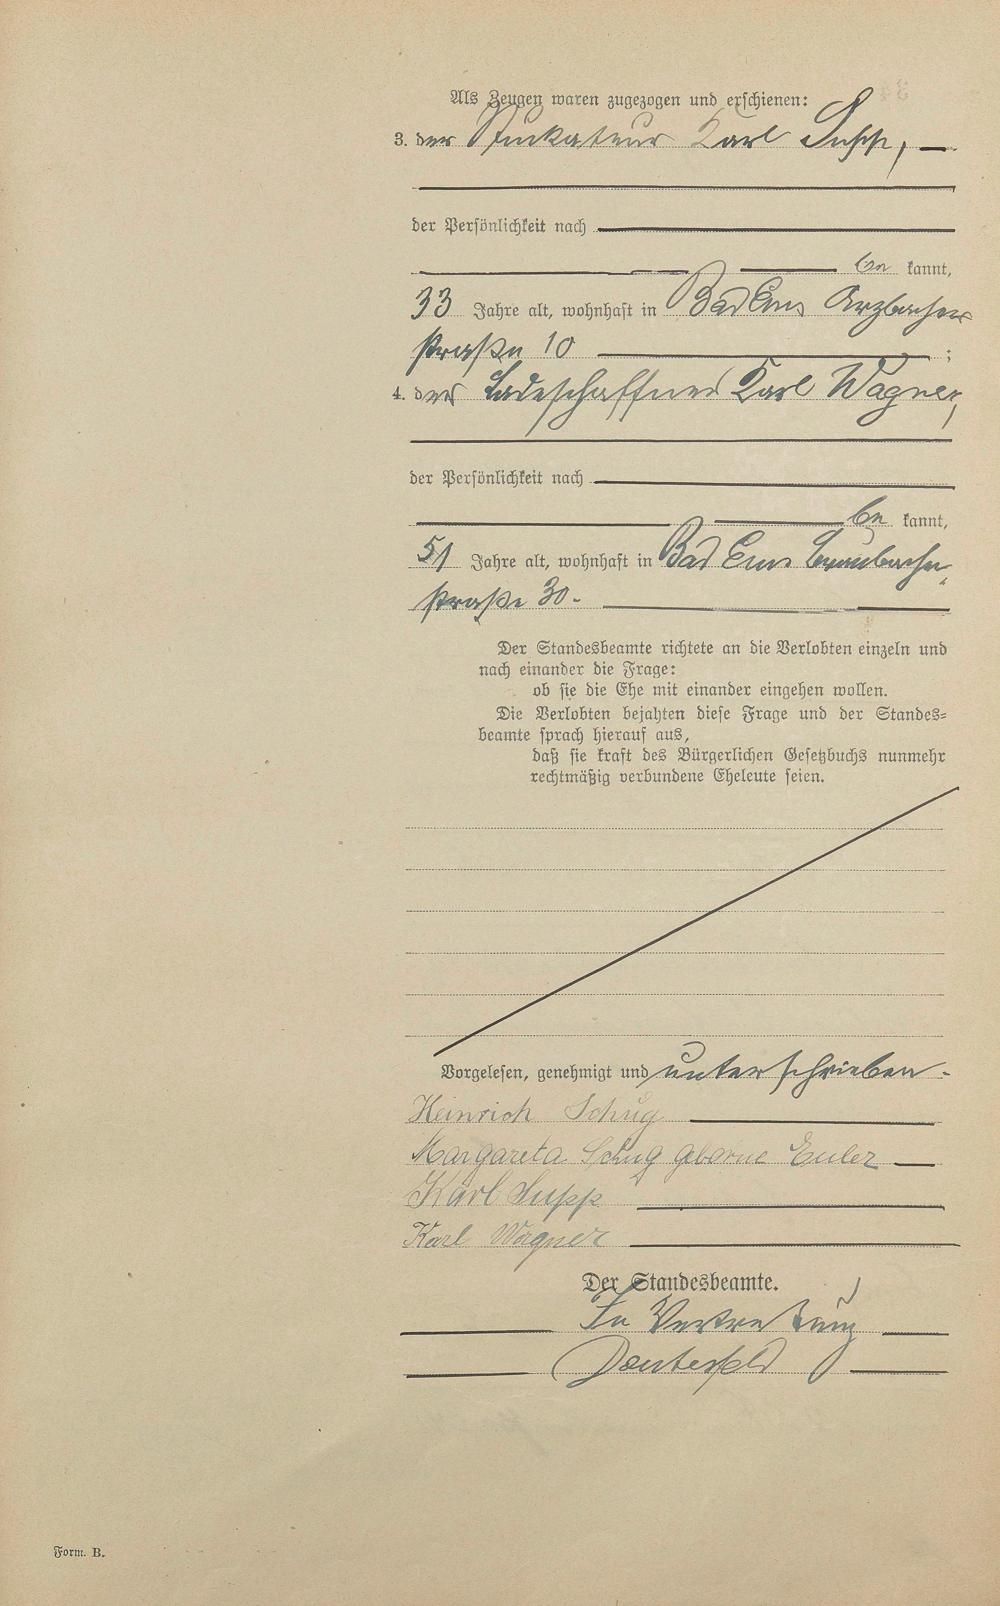 Als Zeugen waren zugezogen und erschienen:
3. der Stuckateur Karl Supp,
der Persönlichkeit nach
be kannt,
33 Jahre alt, wohnhaft in Bad Ems Arzbacher
straße 10 ;
4. der Ladeschaffner Karl Wagner,
der Persönlichkeit nach
be kannt,
51 Jahre alt, wohnhaft in Bad Ems Braubacher
straße 30.
Der Standesbeamte richtete an die Verlobten einzeln und
nach einander die Frage:
ob sie die Ehe mit einander eingehen wollen.
Die Verlobten bejahten diese Frage und der Standes=
beamte sprach hierauf aus,
daß sie kraft des Bürgerlichen Gesetzbuchs nunmehr
rechtmäßig verbundene Eheleute seien.
Vorgelesen, genehmigt und unterschrieben.
Heinrich Schug
Margareta Schug geborne Euler
Karl Supp
Karl Wagner
Der Standesbeamte.
In Vertretung
Form. B.